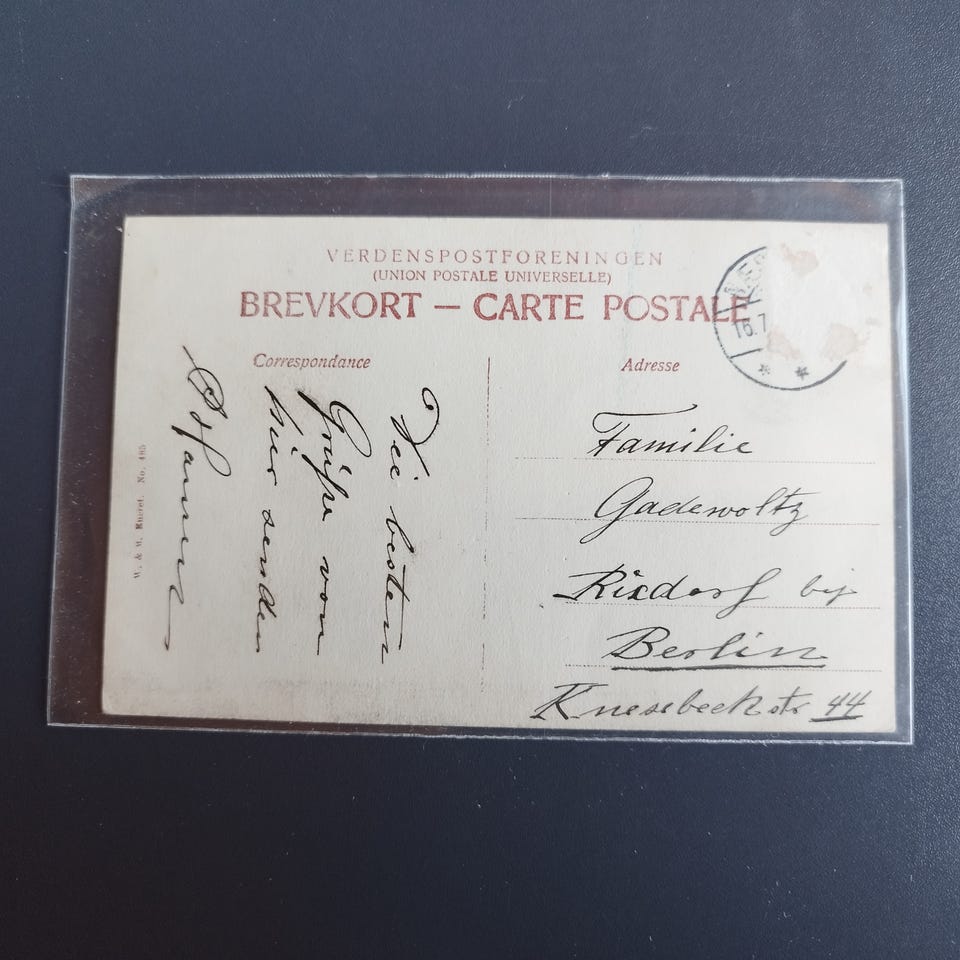 VERDENSPOSTFORENINGEN
(UNION POSTALE UNIVERSELLE)
BREVKORT — CARTE POSTALE
Correspondance
Adresse
Die besten
Grüße von
hier senden
Familie
Gadewoltz
Rixdorf bei
Berlin
Knesebeckstr 44
No. 485